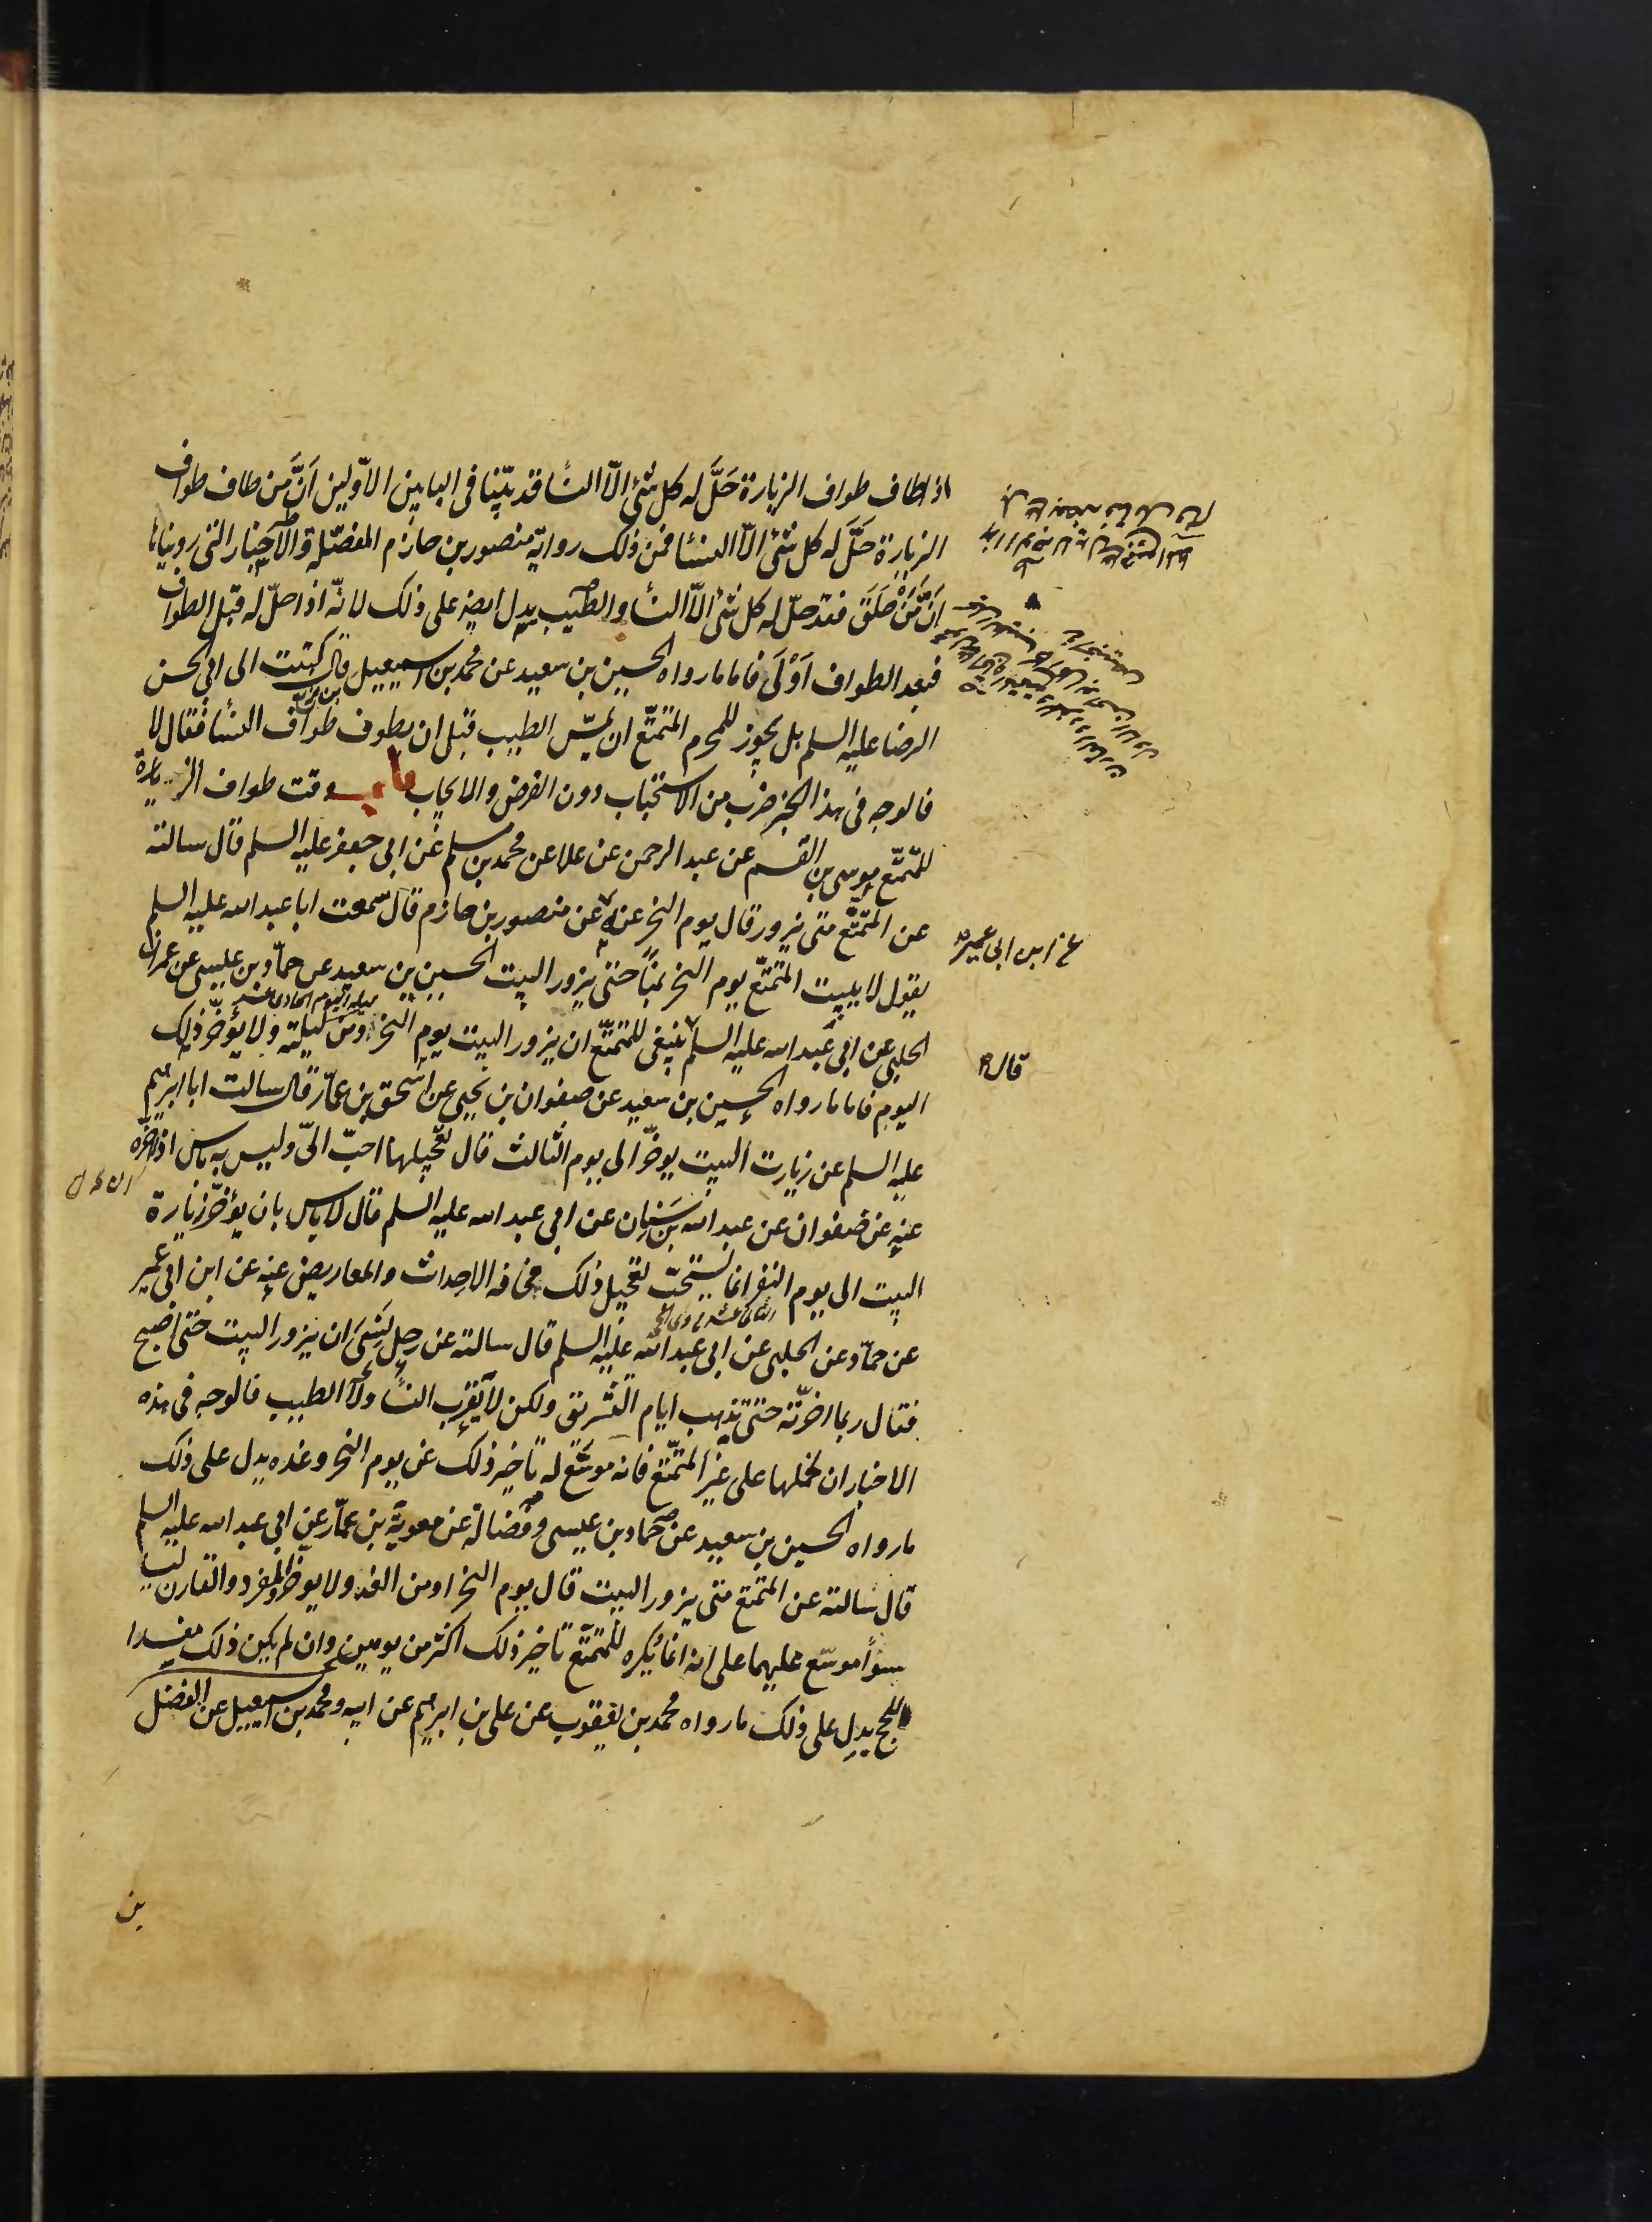 اذا طاف طواف الزيارة حَلَّ له كل شئ الّا النسأ قد بيّنّا فى البابين الاوّلين اَنَّ مَن طاف طواف
الزيارة حَلَّ له كل شئ الّا النسأ فمن ذلك رواية منصور بن حازم المفصّلة والاخبار التى رويناها
اَنَّ مَنْ حَلَقَ فقد حلّ له كل شئ الّا النسأ والطيب يدل ايضا على ذلك لانّه اذا حلّ له قبل الطواف
فبعد الطواف اَوْلَى فاما ما رواه الحسين بن سعيد عن محمد بن اسمعيل قال كتبت الى ابى الحسن
الرضا عليه السلم هل يجوز للمحرم المتمتّع ان يمسّ الطيب قبل ان يطوف طواف النسأ فقال لا
فالوجه فى هذا الخبر ضرب من الاستحباب دون الفرض والايجاب باب وقت طواف الزيارة
للمتمتّع موسى بن القسم عن عبد الرحمن عن علا عن محمد بن مسلم عن ابى جعفر عليه السلم قال سالته
عن المتمتّع متى يزور قال يوم النحر عنه عن منصور بن حازم قال سمعت ابا عبد الله عليه السلم
عن ابن ابى عمير
يقول لا يبيت المتمتّع يوم النحر بمنًا حتى يزور البيت الحسين بن سعيد عن حمّاد بن عيسى عن عمران
ليلة اليوم الحادى عشر
الحلبى عن ابى عبد الله عليه السلم ينبغى للمتمتّع ان يزور البيت يوم النحر ومن ليلته ولا يؤخّر ذلك
قال
اليوم فاما ما رواه الحسين بن سعيد عن صفوان بن يحيى عن اسحق بن عمّار قال سالت ابا ابرهيم
عليه السلم عن زيارت البيت يوخّر الى يوم الثالث قال تعجيلها احبّ الىّ وليس به باس اذا اخّره
عنه عن صفوان عن عبد الله بن سَنان عن ابى عبد الله عليه السلم قال لا باس بان يؤخّر زيارة
البيت الى يوم النفر انما يستحبّ تعجيل ذلك مخافه الاحداث والمعاريض عنه عن ابن ابى عمير
عن حمّاد عن الحلبى عن ابى عبد الله عليه السلم قال سالته عن رجل نسى ان يزور البيت حتى اصبح
فقال ربما اخّرته حتى تذهب ايام التشريق ولكن لا يقرب النسأ ولا الطيب فالوجه فى هذه
الاخبار ان نحملها على غير المتمتّع فانه موسّع له تاخير ذلك عن يوم النحر وغده يدل على ذلك
ما رواه الحسين بن سعيد عن حماد بن عيسى وفضالة عن معوية بن عمّار عن ابى عبد الله عليه السلم
قال سالته عن المتمتع متى يزور البيت قال يوم النحر او من الغد ولا يوخّر والمفرد والقارن ليسا
سوأ موسّع عليهما على انه انما يكره للمتمتّع تاخير ذلك اكثر من يومين وان لم يكن ذلك مفسدا
للحج يدل على ذلك ما رواه محمد بن يعقوب عن على بن ابرهيم عن ابيه ومحمد بن اسمعيل عن الفضل
بن